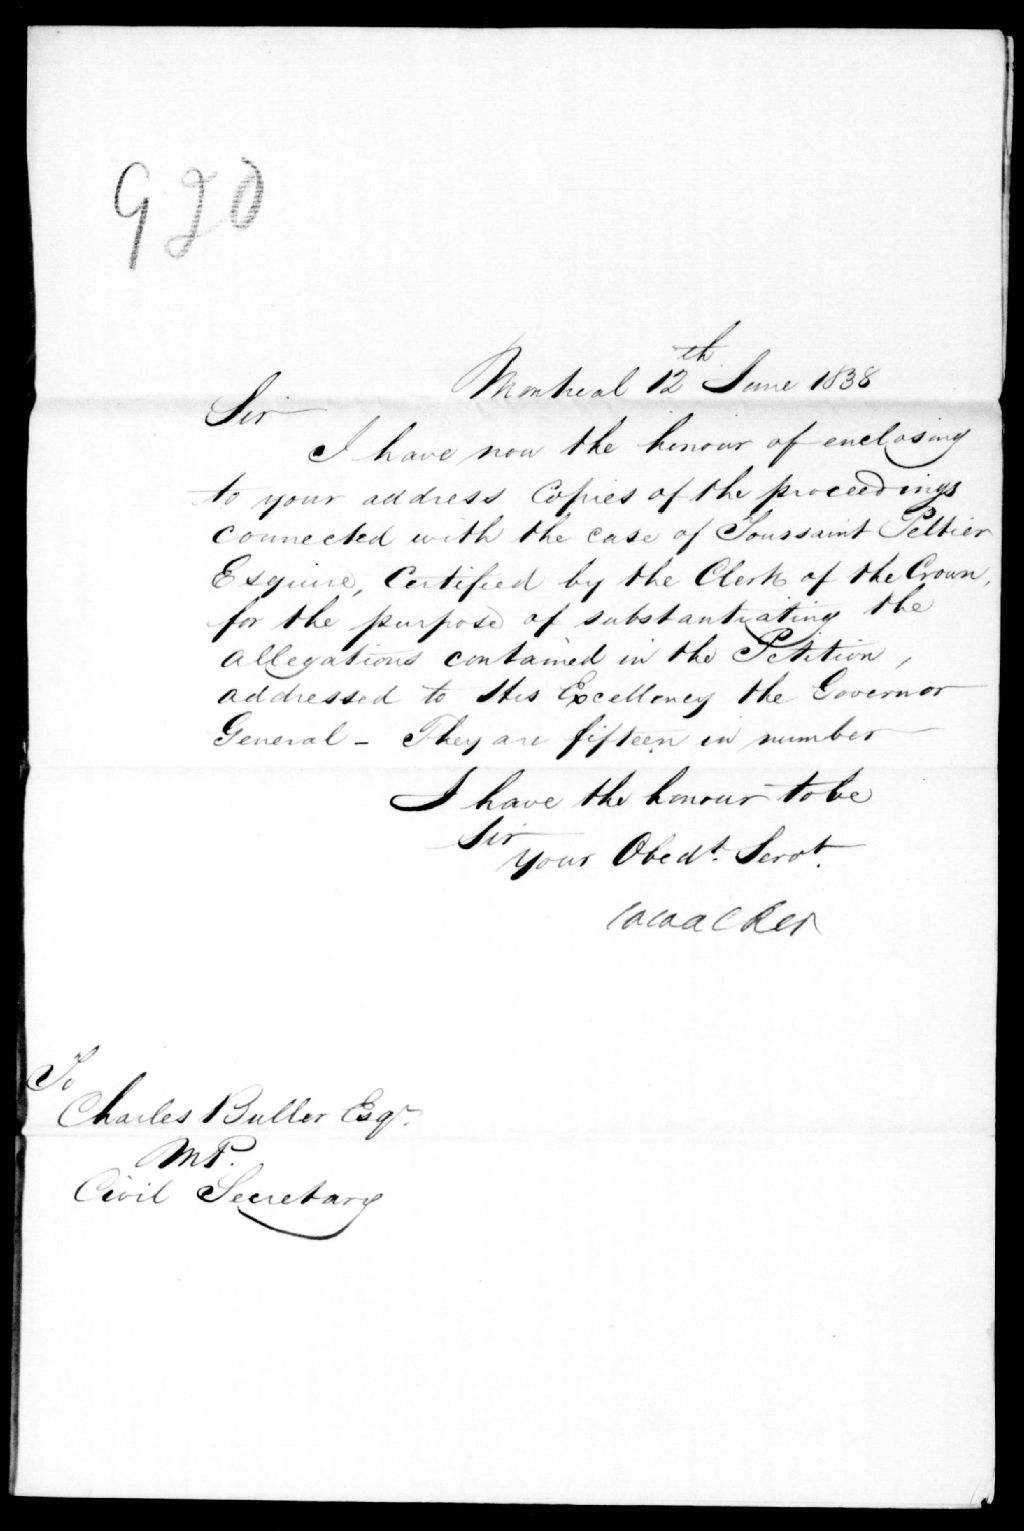 920
Montreal 12th June 1838
Sir
I have now the honour of enclosing
to your address Copies of the proceedings
connected with the case of Toussaint Peltier
Esquire, Certified by the Clerk of the Crown,
for the purpose of substantiating the
allegations contained in the Petition,
addressed to His Excellency the Governor
General - They are fifteen in number
I have the honour to be
Sir
Your Obedt. Servt.
Walker
To
Charles Buller Esqr.
MP.
Civil Secretary